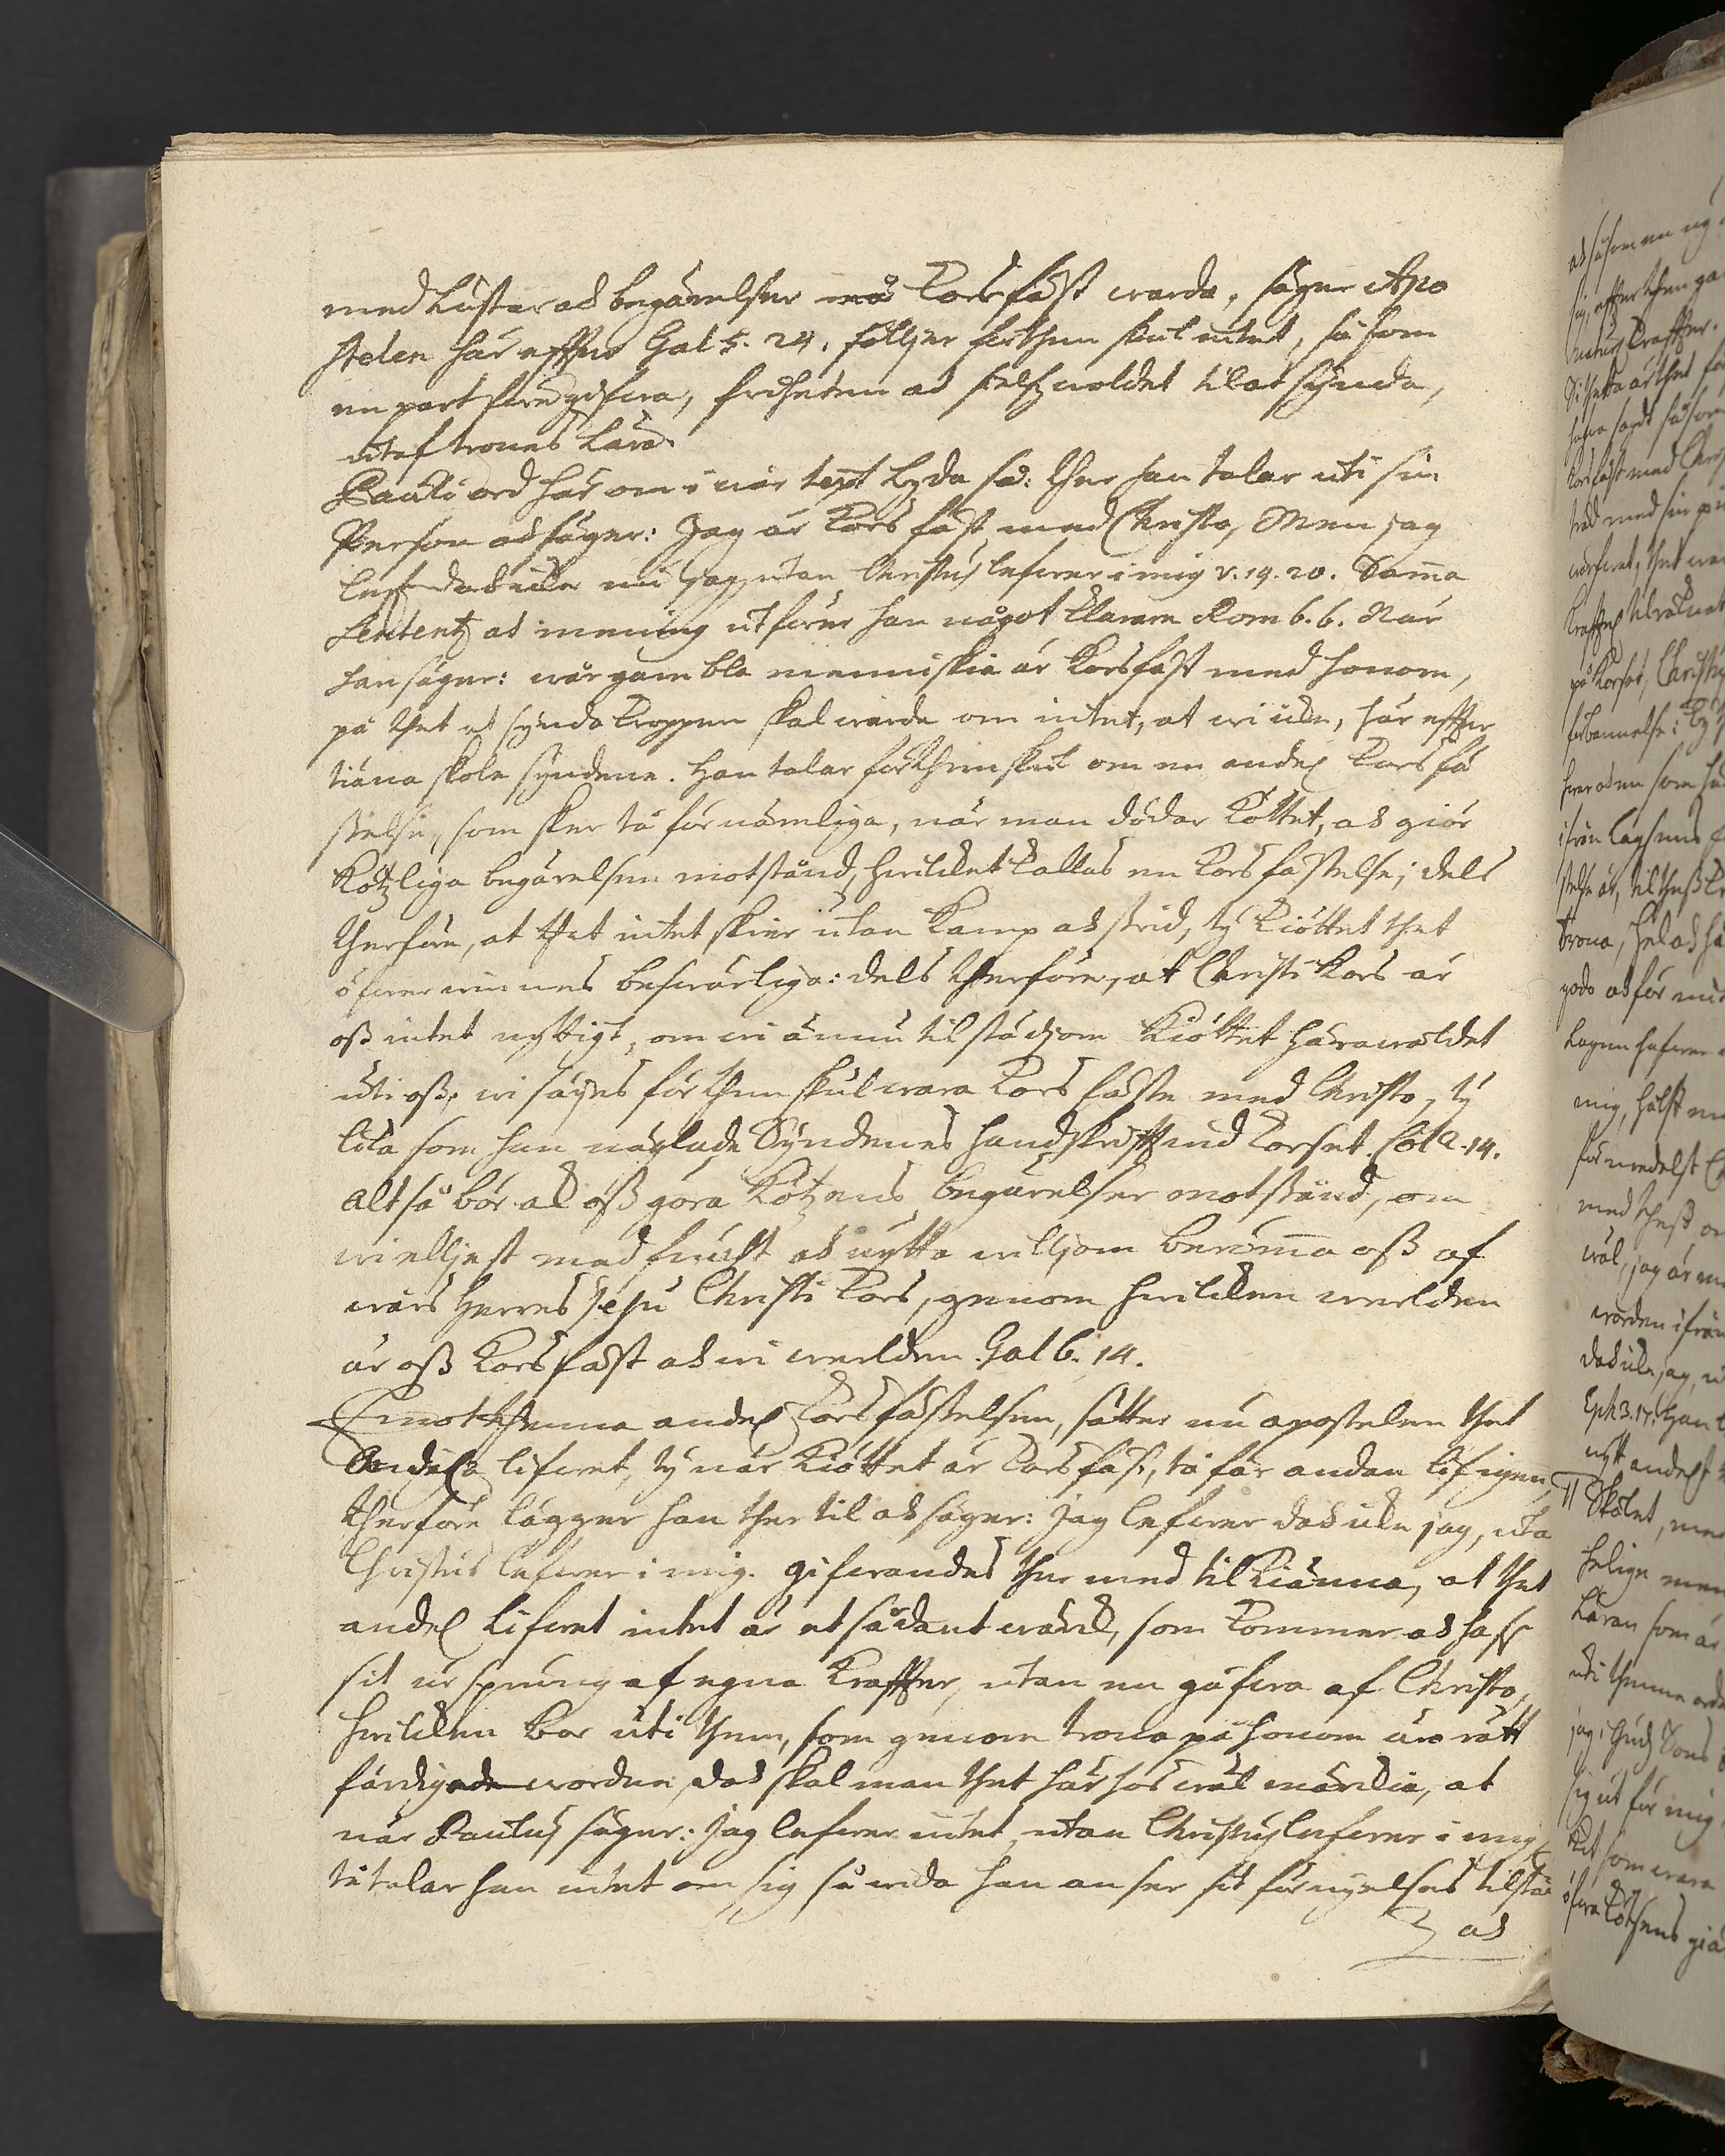 med lustar och begärelser må korsfäst warda, säger Apo
stelen här effter Gal 5. 24. följer forthen skul intet, så som
en part föregifwa, friheten och sielfzwoldet til at synda,
utaf trones Lära.
Pauli ord här om i wår text lyda så: ther han talar uti sin
Person och säger: Jag är korsfäst med Christo, Men jag
leff doch icke nu jag, utan Christus lefwer i mig v. 19. 20. Samma
Sententz och mening utförer han något klarare Rom 6. 6. När
han säger: wår gambla menniskia är korsfäst med honom,
på thet at synda kroppen skal warda om intet, at wi icke, här effter
tiäna skole syndene. Han talar för then skul om en andel. korsfä
stelse, som sker tå förnämliga, när man dödar köttet, och giör
kötzliga begärelsen motstånd, hwilcket kallas en korsfästelse; dels
therföre, at thet intet skier utan kamp och strid, ty kiöttet thet
öfwerwinnes beswärliga: dels therföre, at Christi kors är
oss intet nyttigt, om wi ännu tilstädjom kiöttet härawäldet
uti oss, wi säijes för then skul wara korsfäste med Christo, ty
lika som han näglade Syndenes handskrifft wid korset. Col 2. 14.
altså bör ock oss göra kötzens begärelser motstånd, om
wi elliest med frucht och nytta williom berömma oss af
wårs Herres Jesu Christi kors, genom hwilcken werlden
är oss korsfäst och wi werlden. Gal 6. 14.
Emot thenna andel. korsfästelsen, sätter nu apostelen thet
Andel. lifwet, ty när kiöttet är korsfäst, tå får andan lif igen,
therföre lägger han ther til och säger: Jag lefwer doch icke jag, uta
Christus lefwer i mig. gifwandes ther med tilkiänna, at thet
andel. lifwet intet är et sådant wärck, som kommer och haf
sit ursprung af egna kraffter, utan en gåfwa af Christo,
hwilcken bor uti them, som genom trona på honom äro rätt
färdigade wordne doch skal man thet här hos wäl märckia, at
när Paulus säger: Jag lefwer intet, utan Christus lefwer i mig,
tå talar han intet om sig så wida han anser sit förnyelses tilstå
och